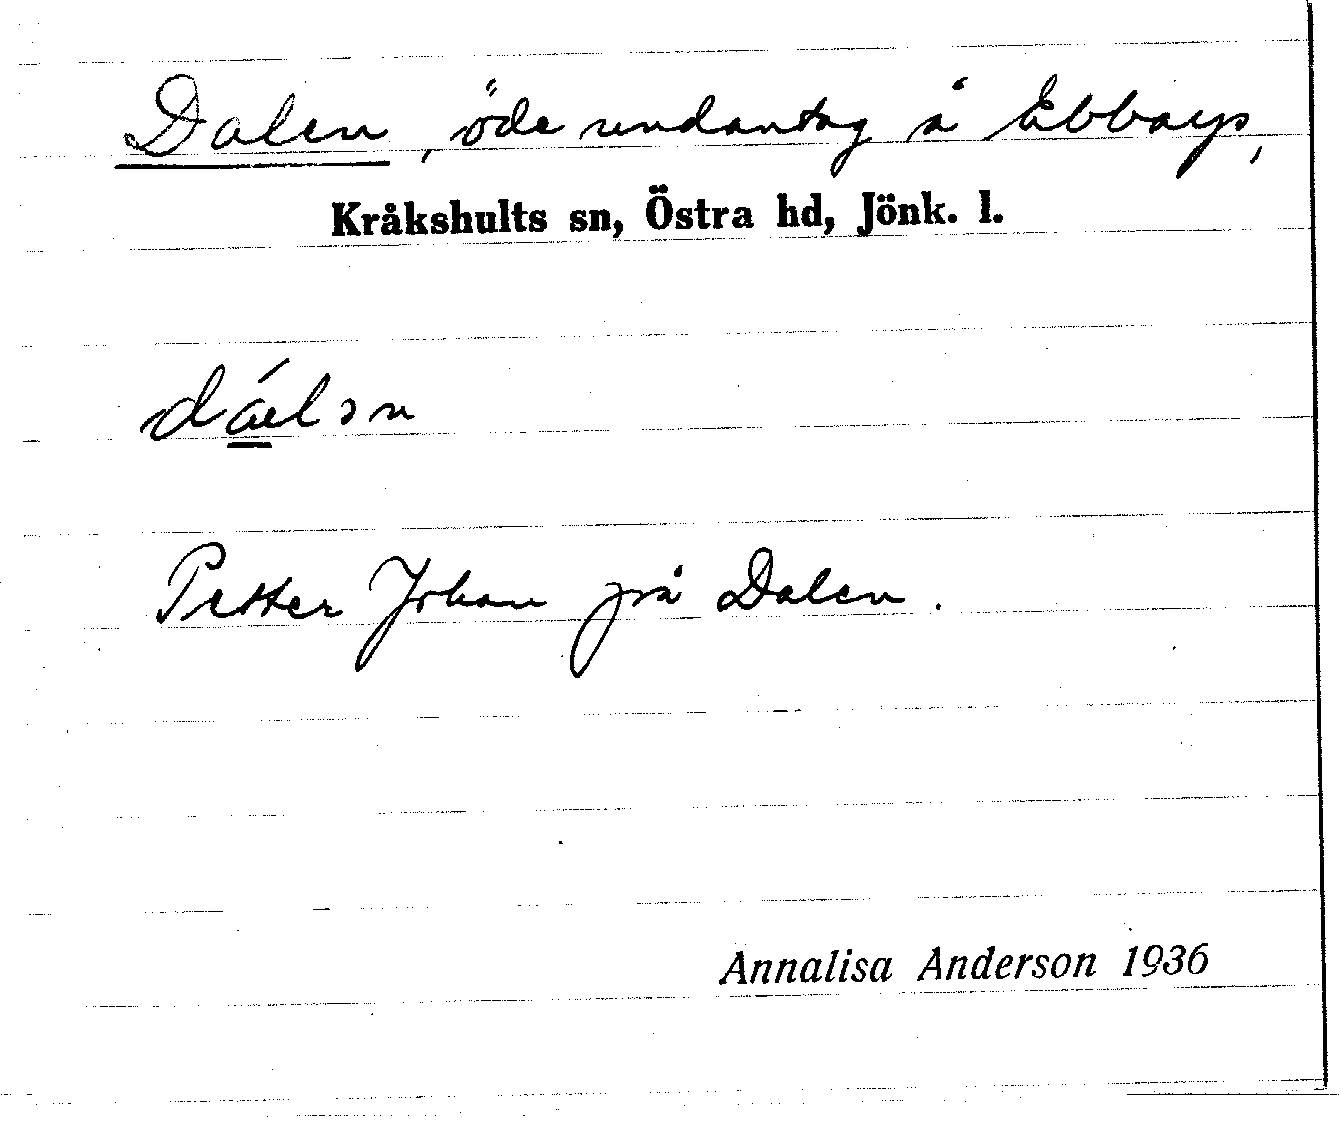 Dalen, öde undantag å Ebbarp,
Kråkshults sn, Östra hd, Jönk. l.
Petter Johan på Dalen.
Annalisa Anderson 1936